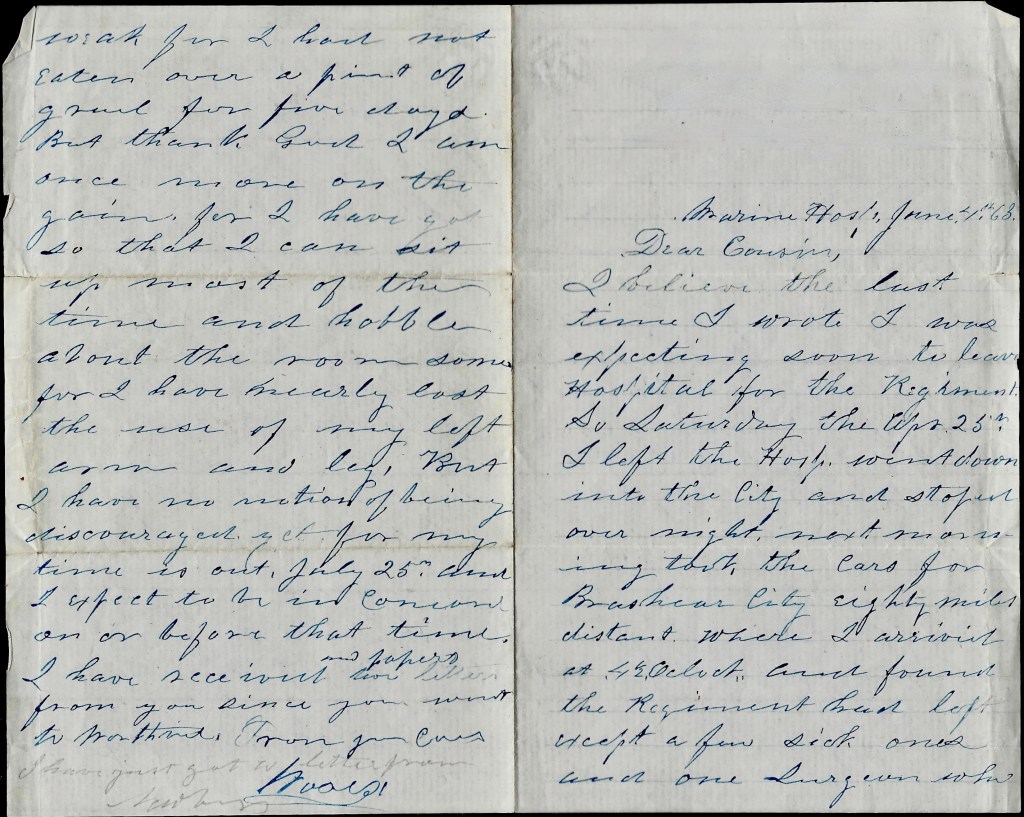 Marine Hosp, June 4th 63.
Dear Cousin,
I believe the last
time I wrote I was
expecting soon to leave
Hospital for the Regiment.
So Saturday the Apr. 25th
I left the Hosp. went down
into the City and stoped
over night. next morn-
ing took the Cars for
Brashear City eighty miles
distant where I arrivied
at 4 Oclock. and found
the Regiment had left
except a few sick ones
and one Surgeon who
weak for I had not
eaten over a pint of
gruel for five days.
But thank God I am
once more on the
gain. for I have got
so that I can sit
up most of the
time and hobble
about the room some
for I have nearly lost
the use of my left
arm and leg, But
I have no notion of being
discouraged yet for my
time is out, July 25th and
I expect to be in Concord
on or before that time.
and papers
I have received two letters
from you since you went
to From you Cous
I have just got a letter from